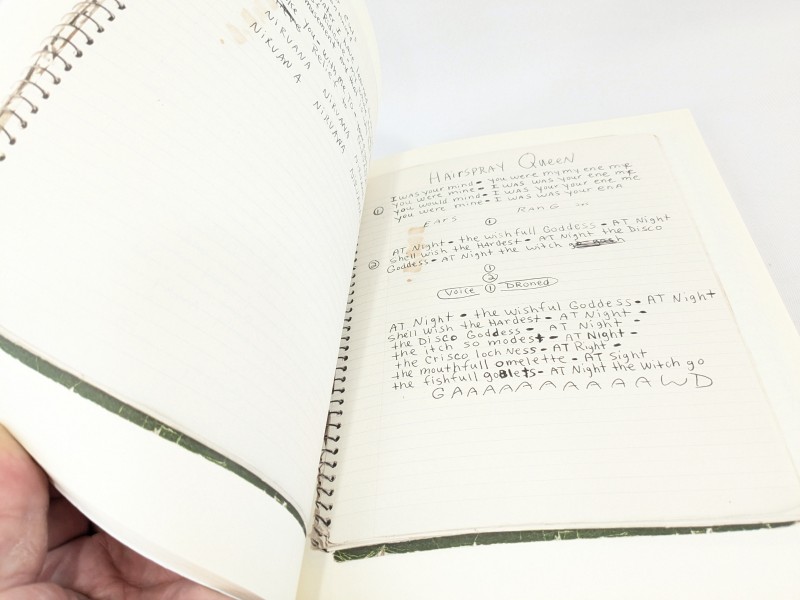 NIRVANA
NIRVANA
NIRVANA
NIRVANA
HAIRSPRAY QUEEN
I was your mind - you were my my ene me
you were mine - I was was your ene me
you would mind - I was your your ene me
you were mine - I was was your ena
①
EARS ① RANG
AT Night - the wishfull Goddess - AT Night
Shell wish the Hardest - AT Night the Disco
Goddess - AT Night the witch go
②
①
②
Voice ① DRoned
AT Night - the wishful Goddess - AT Night
shell wish the Hardest - AT Night -
the Disco Goddess - AT Night -
the itch so modest - AT Night -
the crisco loch Ness - AT Right -
the mouthfull omelette - AT Sight
the fishfull goblets - AT Night the Witch go
GAAAAAAAAAAWD